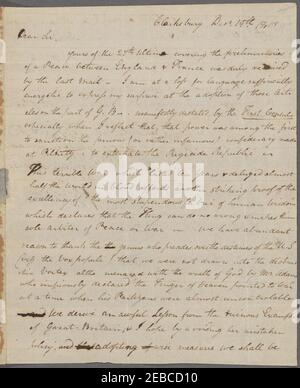 Clarksburg Decr 15th 1801
Dear Sir
yours of the 27th Ultimo covering the preliminaries
of a Peace between England & France was duly received
by the last Mail — I am at a loss for language sufficiently
energetic to express my surprise at the adoption of those Arti-
cles on the part of G. B. manifestly dictated by the First Consul
especially when I reflect that, that power was among the first
to sanction the famous (or rather infamous) confederacy made
at Pilnitz — to extirpate the Regicide Republic
This terrible War which has ten years deluged almost
half the world in blood afford another striking proof of the
excellency of the most stupendous fabric of human wisdom
which declares that the King can do no wrong & makes him
sole arbiter of Peace or War — We have abundant
reason to thank the genius who presides over the destinies of the U. S.
(viz) the vox populi that we were not drawn into the
vortex altho menaced with the wrath of God by Mr Adams
who impiously declared the Finger of Heaven pointed to war
at a time when his Partizans were almost uncontrolable
We derive an awful Lesson from the furious Example
of Great-Britain, & I hope by avoiding her mistaken
policy, and adopting wise measures we shall be
alamy
Image ID: 2EBCD10
www.alamy.com